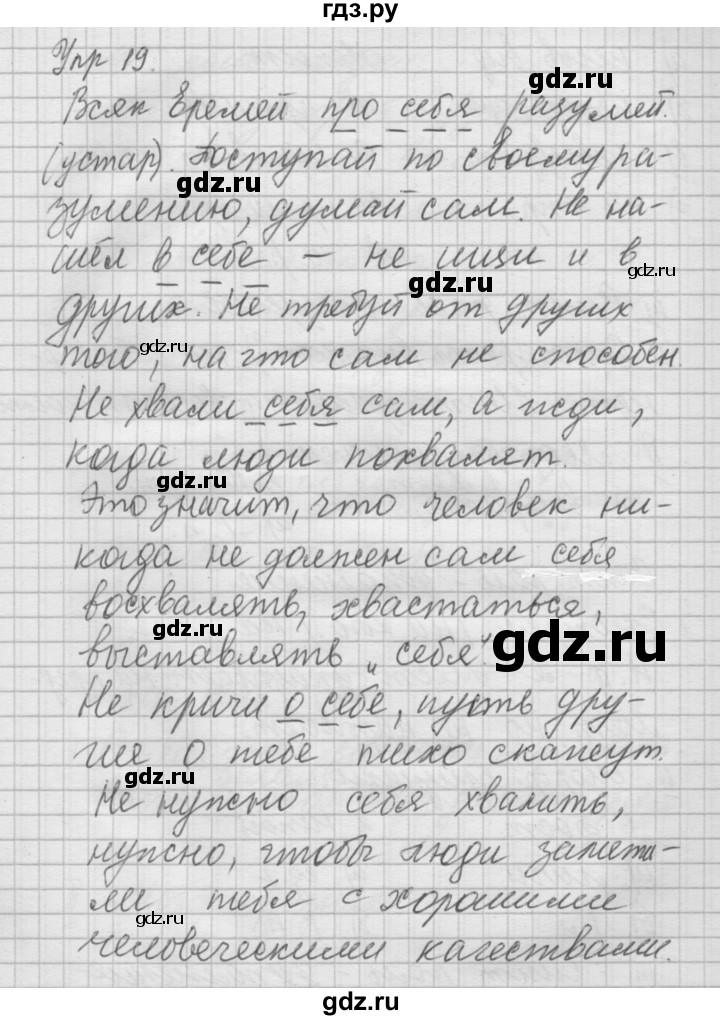 гдз.ру
Упр 19.
Всяк Еремей про себя разумей.
(устар). Поступай по своему ра-
зумению, думай сам. Не на-
шёл в себе – не ищи и в
других. Не требуй от других
того, на что сам не способен.
Не хвали себя сам, а жди,
когда люди похвалят.
Это значит, что человек ни-
когда не должен сам себя
восхвалять, хвастаться,
выставлять „себя".
Не кричи о себе, пусть дру-
гие о тебе тихо скажут.
Не нужно себя хвалить,
нужно, чтобы люди замети-
ли тебя с хорошими
человеческими качествами.
gdz.ru
gdz.ru
gdz.ru
gdz.ru
gdz.ru
gdz.ru
gdz.ru
gdz.ru
gdz.ru
gdz.ru
gdz.ru
gdz.ru
gdz.ru
gdz.ru